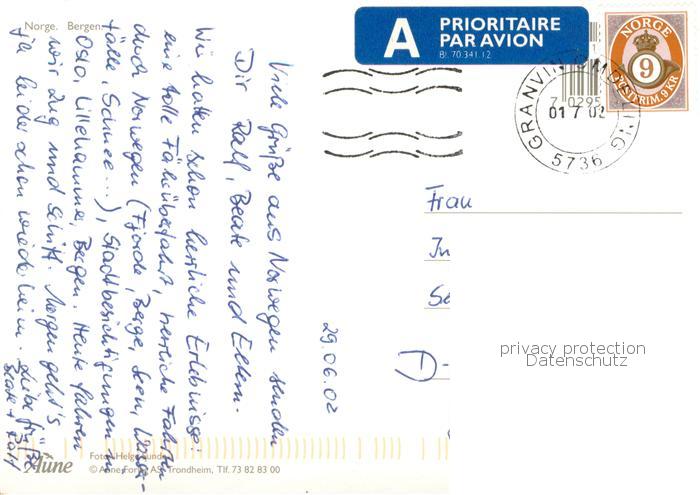 Norge. Bergen.
29.06.02
Viele Grüße aus Norwegen senden
Dir Ralf, Beate und Eltern.
Wir hatten schon herrliche Erlebnisse:
eine tolle Fährüberfahrt, herrliche Fahrten
durch Norwegen (Fjorde, Berge, Seen, Wasser-
fälle, Schnee...), Stadtbesichtigungen in
Oslo, Lillehammer, Bergen. Heute fahren
wir Zug und Schiff. Morgen geht's
ja leider schon wieder heim. Liebe Grüße
Beate + Ralf
Aune
Foto: Helge Sunde
© Aune Forlag AS, Trondheim, Tlf. 73 82 83 00
A PRIORITAIRE
PAR AVION
Bl. 70.341 12
NORGE
9
POSTFRIM. 9 KR
GRANVIN
01 7 02
5736
7 0295
Frau
In
Se
D-
privacy protection
Datenschutz